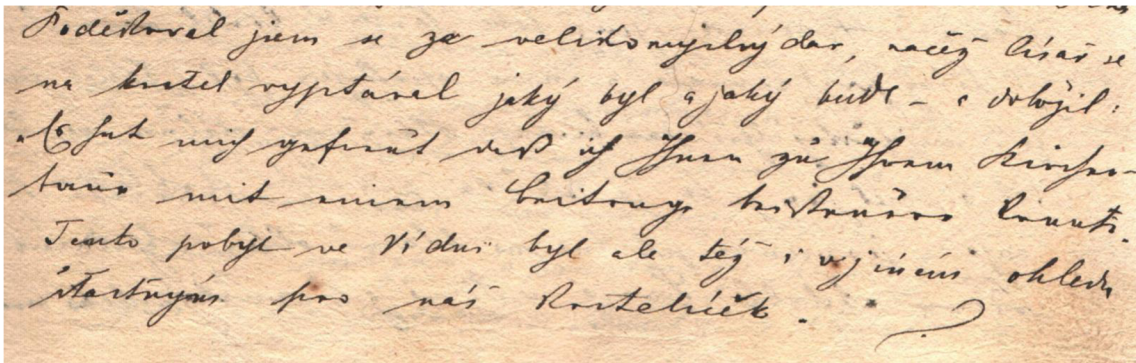 Poděkoval jsem se za velikomyslný dar, načež Císař se
na kostel vyptával jaký byl a jaký bude – a doložil:
„Es hat mich gefreut daß ich Ihnen zu Ihrem Kirchen-
baue mit einem Beitrage beisteuern konnte.
Tento pobyt ve Vídni byl ale též i v jiném ohledu
šťastným pro náš kostelíček.